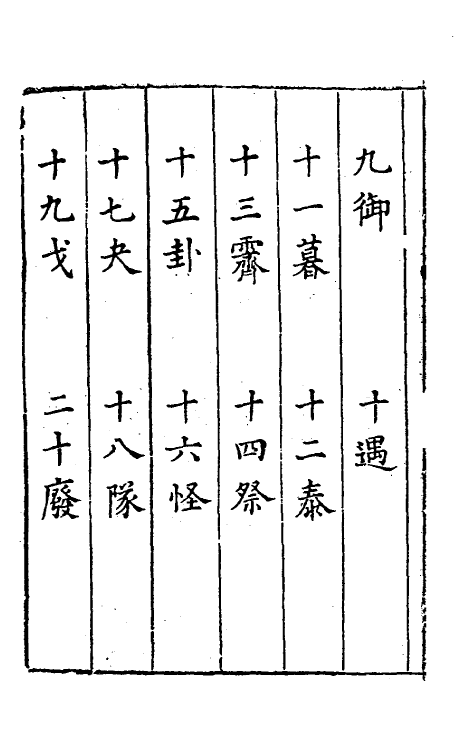 九御 十遇
十一暮 十二泰
十三霽 十四祭
十五卦 十六怪
十七夬 十八隊
十九代 二十廢